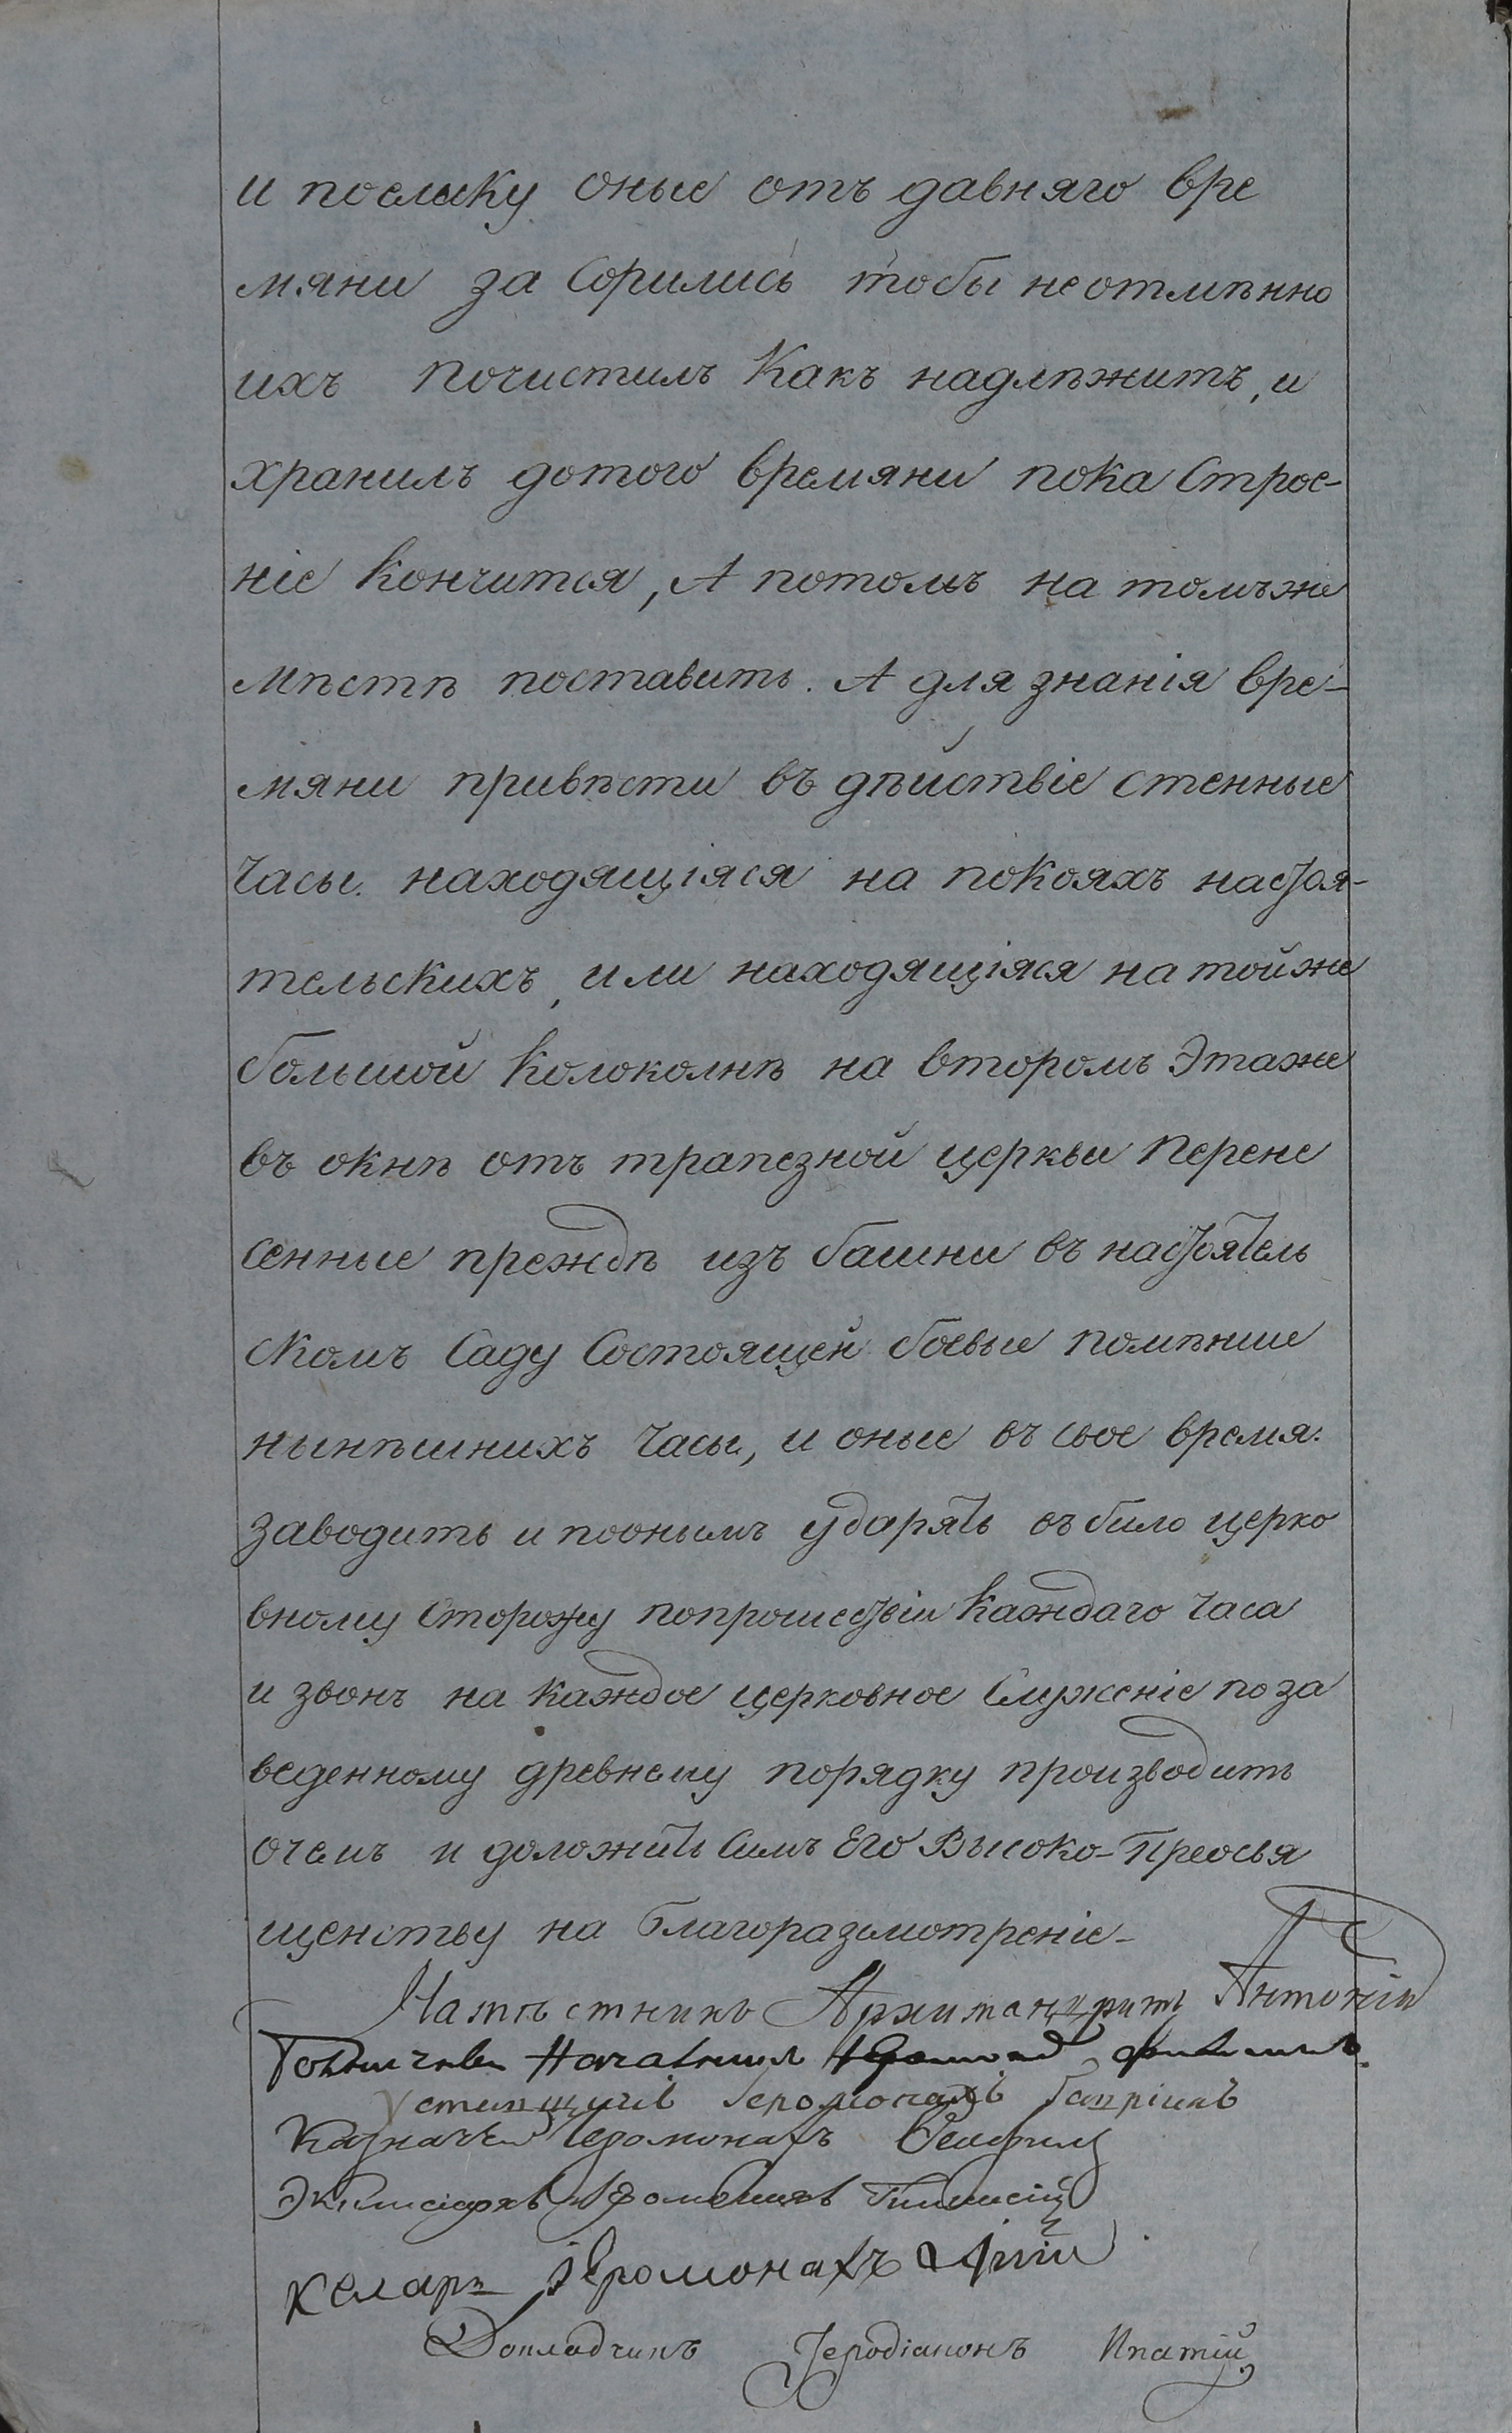 и поелику оные отъ давняго вре
мяни за сорились тобы неотмѣнно
ихъ почистилъ какъ надлѣжитъ, и
хранилъ дотого времяни пока строе-
ніе кончится, А потомъ на томъже
мѣстѣ поставить. А для знанія вре-
мяни привѣсти въ дѣйствіе стенные
часы. находящіяся на покояхъ настоя-
тельскихъ, или находящіяся на тойже
большой колоколнѣ на второмъ этаже
въ окнѣ отъ трапезной церкви перене
сенные преждѣ изъ башни въ настоятель
скомъ саду состоящей боевые помѣнше
нынѣшнихъ часы, и оные въ свое время.
заводить и поонымъ ударять въ било церко
вному сторожу попрошествіи каждаго часа
и звонъ на каждое церковное служеніе по за
веденному древнему порядку производить
очемъ и доложить симъ Его Высоко-Преосвя
щенству на благоразсмотреніе-
Намѣстникъ Архимандритъ Антоній
Началникъ
Уставщикъ Іеромонахъ
Казначей Іеромонахъ
Экклисіархъ
Келарь Іеромонахъ
Докладчикъ Іеродіаконъ Ипатій